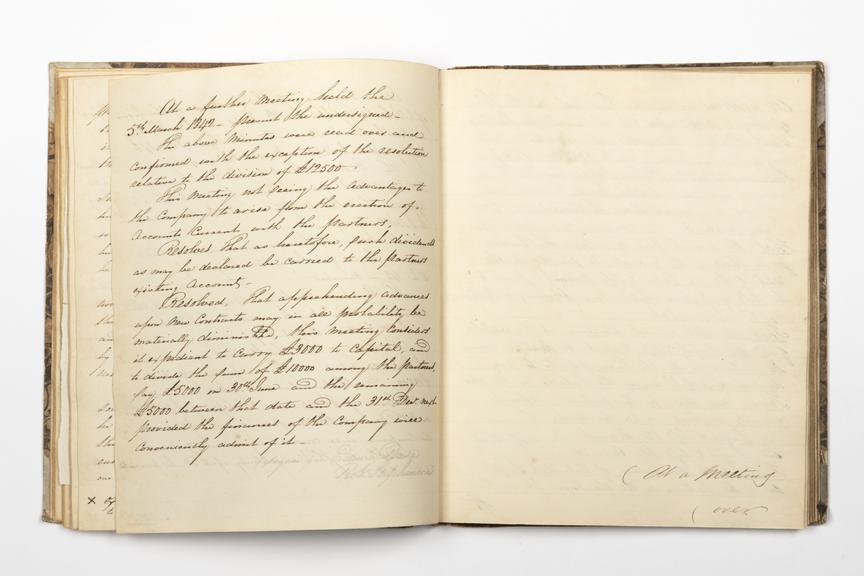 At a further Meeting held the
5th March 1842 - Present the undersigned -
The above Minutes were read over and
confirmed with the exception of the resolution
relative to the division of £12500 -
This Meeting not seeing the advantages to
the Company to arise from the erection of
Accounts Current with the partners,
Resolved that as heretofore, such dividends
as may be declared be carried to the partners
existing Account -
Resolved, That apprehending advances
upon New Contracts may in all probability be
materially diminished, this meeting considers
it expedient to carry £3000 to Capital, and
to divide the sum of £10000 among the partners,
say £5000 on 30th June and the remaining
£5000 between that date and the 31st Decr. next
provided the finances of the Company will
conveniently admit of it -
(At a Meeting
(over